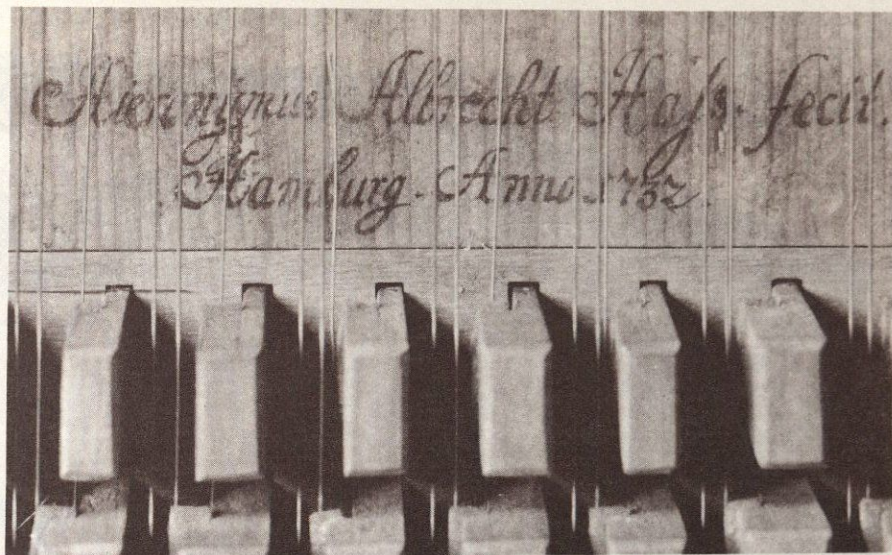 Hieronymus Albrecht Haſs. fecit.
Hamburg. Anno 1732.